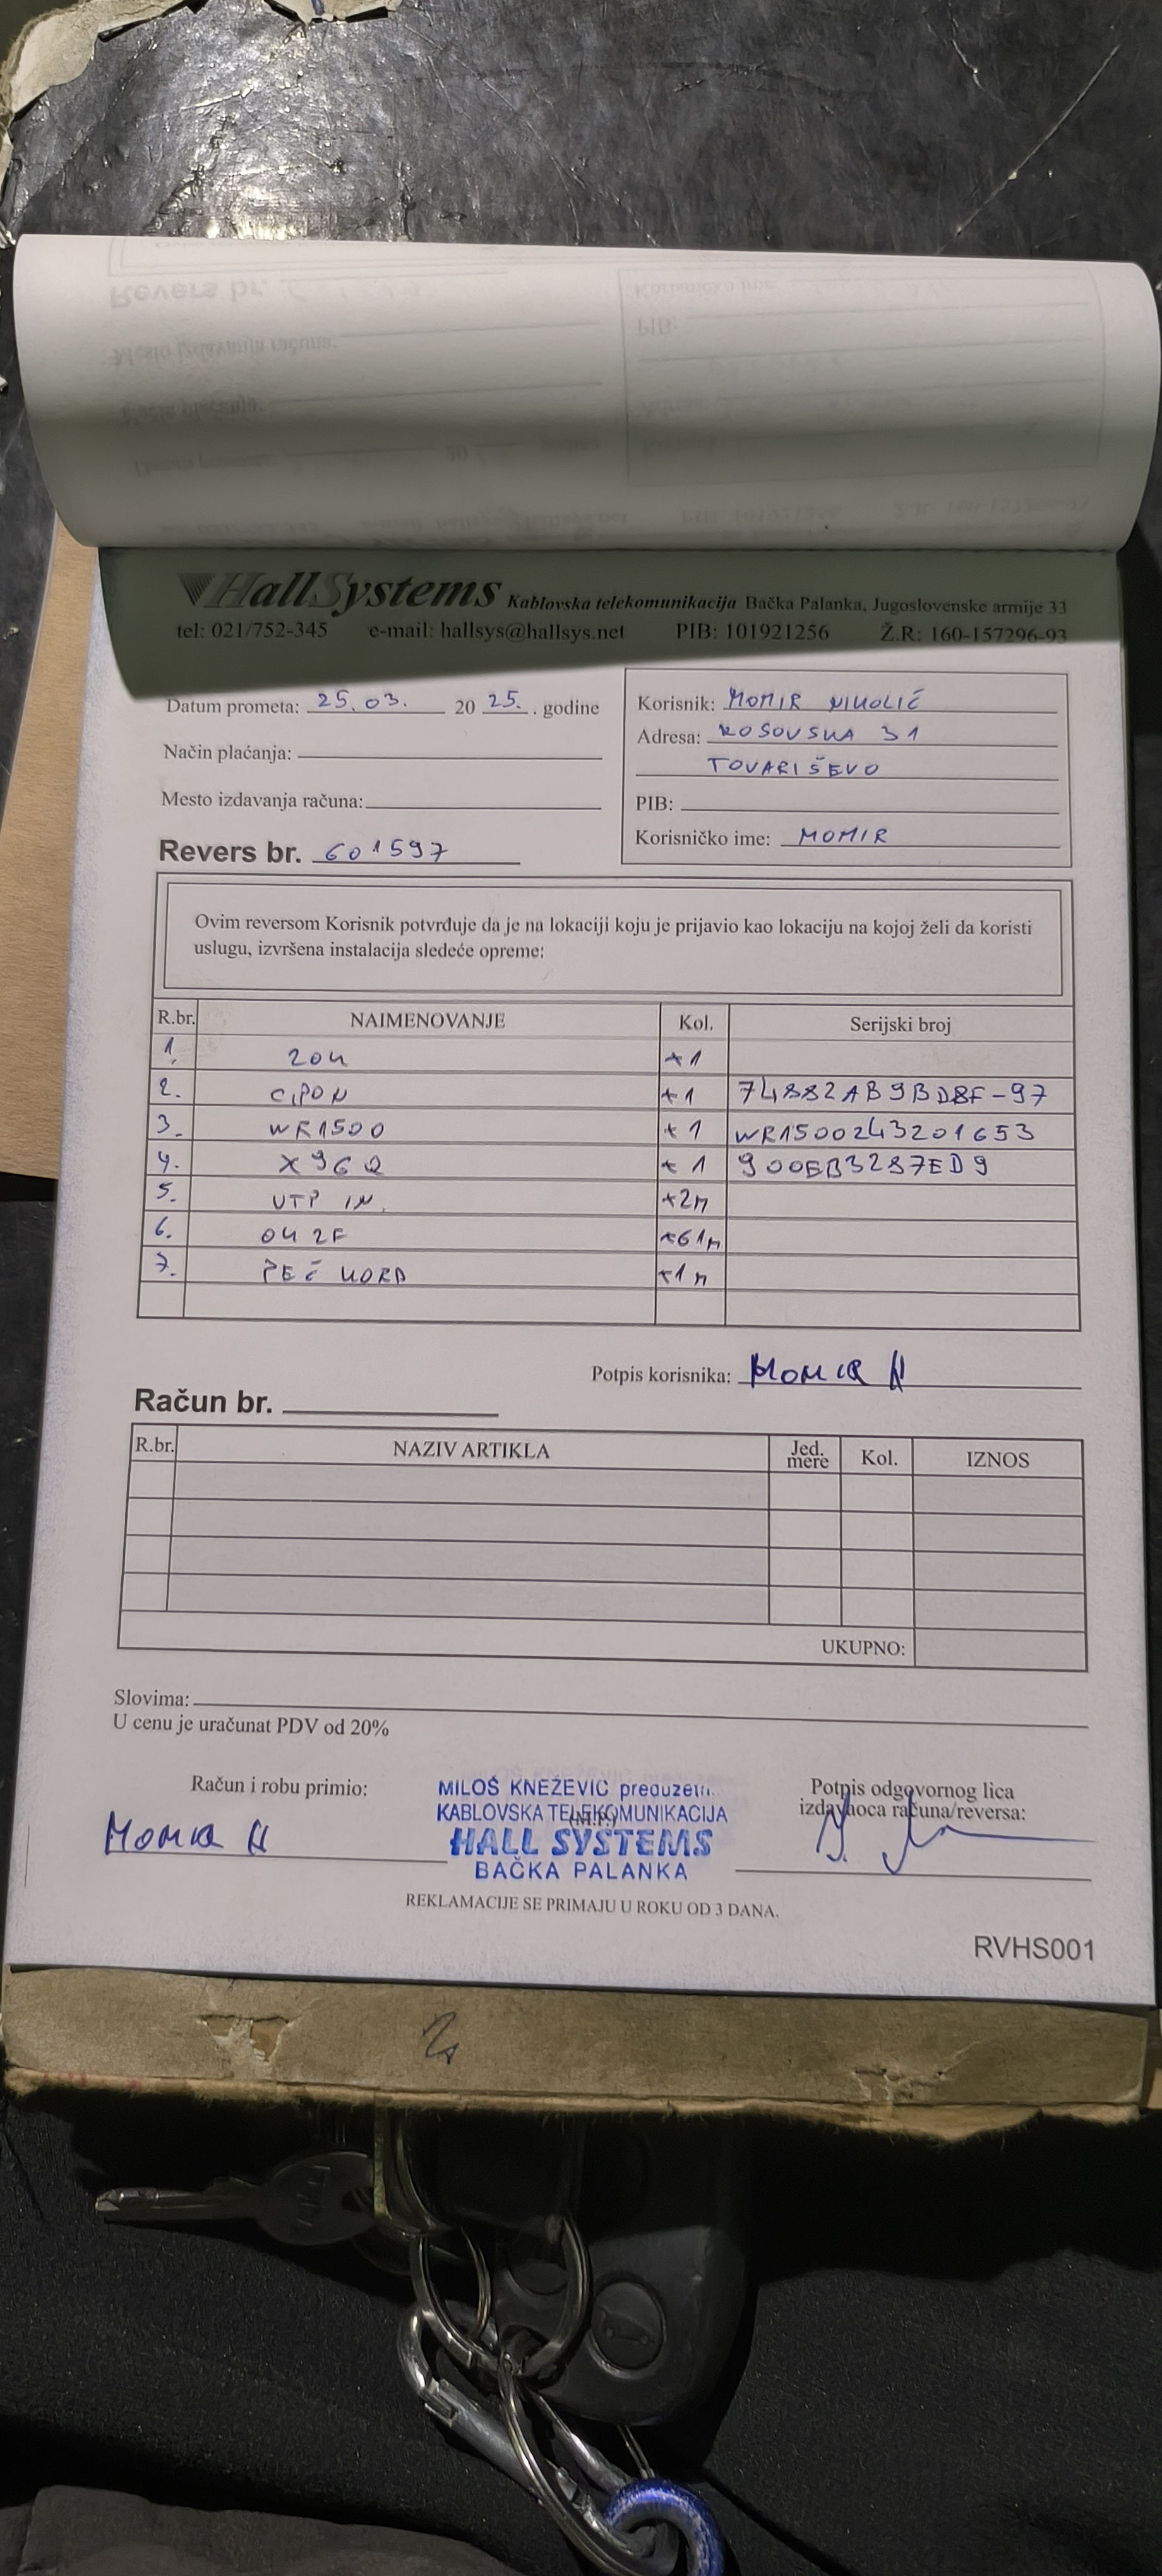 HallSystems Kablovska telekomunikacija Bačka Palanka, Jugoslovenske armije 33
tel: 021/752-345 e-mail: hallsys@hallsys.net PIB: 101921256 Ž.R: 160-157296-93
Datum prometa: 25.03. 20 25. godine
Način plaćanja:
Mesto izdavanja računa:
Revers br. 601597
Korisnik: MOMIR NIKOLIĆ
Adresa: KOSOVSKA 31
TOVARIŠEVO
PIB:
Korisničko ime: MOMIR
Ovim reversom Korisnik potvrđuje da je na lokaciji koju je prijavio kao lokaciju na kojoj želi da koristi
uslugu, izvršena instalacija sledeće opreme:
R.br. NAIMENOVANJE Kol. Serijski broj
1. ZOK +1
2. GPON +1 74882AB9BD8F-97
3. WR1500 +1 WR1500243201653
4. X96Q +1 900EB3287ED9
5. UTP IN. +2m
6. OK 2F +61m
7. PEČ KORD +1m
Potpis korisnika: Momir N
Račun br.
R.br. NAZIV ARTIKLA Jed. mere Kol. IZNOS
UKUPNO:
Slovima:
U cenu je uračunat PDV od 20%
Račun i robu primio:
Momir N
MILOŠ KNEŽEVIĆ preduzetn.
KABLOVSKA TELEKOMUNIKACIJA
(M.P.)
HALL SYSTEMS
BAČKA PALANKA
Potpis odgovornog lica
izdavaoca računa/reversa:
REKLAMACIJE SE PRIMAJU U ROKU OD 3 DANA.
RVHS001